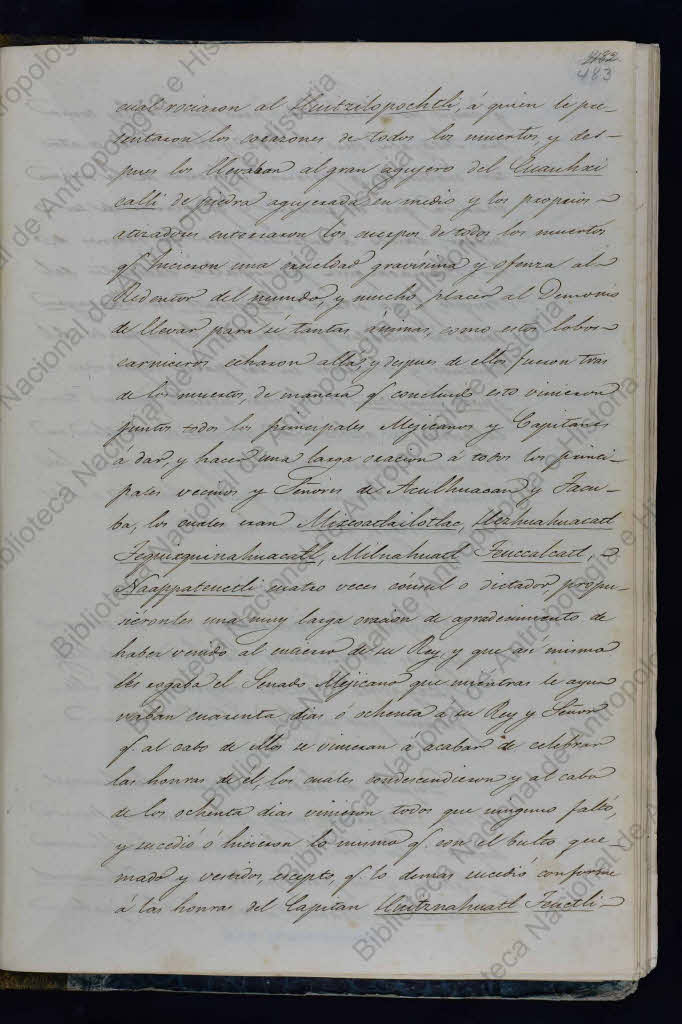 482
483
cual rociaron al Huitzilopochtli, á quien le pre-
sentaron los corazones de todos los muertos, y des-
pues los llevaban al gran agujero del Cuauhxi
calli de piedra agujerada en medio y los propios
atizadores enterraron los cuerpos de todos los muertos
q.e hicieron una crueldad gravísima y ofensa al
Redentor del mundo, y mucho placer al Demonio
de llevar para sí tantas ánimas, como estos lobos
carniceros echaron allá, y despues de ellos fueron tras
de los muertos, de manera q.e concluso esto vinieron
juntos todos los principales Mejicanos y Capitanes
á dar, y hacer una larga oracion á todos los princi-
pales vecinos y Señores de Aculhuacan y Tacu-
ba, los cuales eran Mizcoatlailotlac,
Tequixquinahuacatl, Milnahuatl Teuccalcatl,
Naappateuctli cuatro veces cónsul ó dictador, propu-
siéronles una muy larga oracion de agradecimiento de
haber venido al entierro de su Rey, y que así mismo
les rogaba el Senado Mejicano que mientras le ayu
naban cuarenta dias ó ochenta a su Rey y Señor
q.e al cabo de ellos se vinieran á acabar de celebrar
las honras de el, los cuales condescendieron y al cabo
de los ochenta dias vinieron todos que ninguno faltó,
y sucedió ó hicieron lo mismo q.e con el bulto que-
mado y vestidos, escepto, q.e lo demas sucedió conforme
á las honras del Capitan Huitznahuatl Teuctli
Biblioteca Nacional de Antropología e Historia